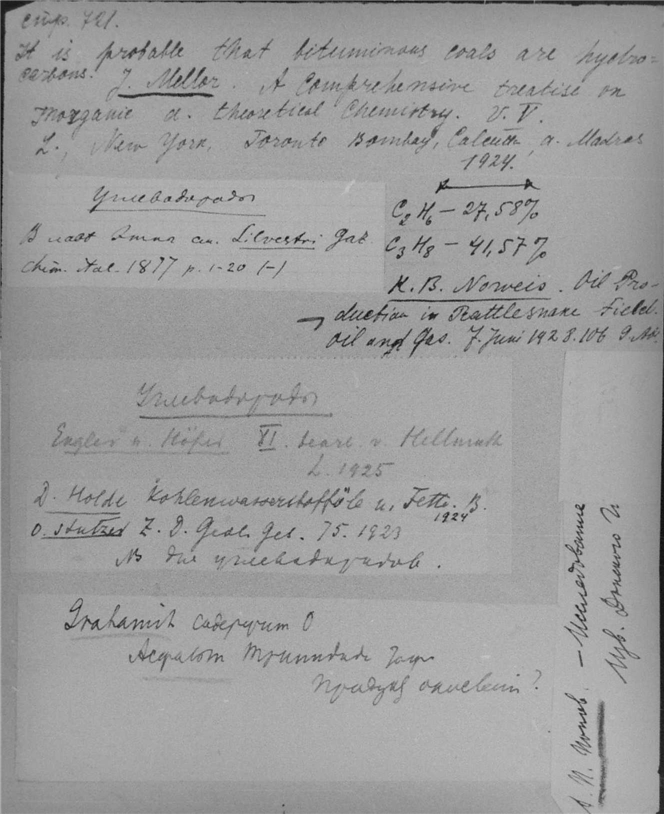 стр. 721.
It is probable that bituminous coals are hydro-
carbons. J. Mellor. A Comprehensive treatise on
Inorganic a. theoretical Chemistry. V. V.
L., New York, Toronto Bombay, Calcutta, a. Madras
1924.
Углеводороды
C2 H6 – 27,58%
В лаве Этны см. Silvestri Gaz
C3 H8 – 41,57%
chim. Ital. 1877 p. 1-20 (–)
K. B. Noweis. Oil Pro-
duction in Rattlesnake Field.
Oil and Gas. J. Juni 1928. 106
Углеводороды
Engler u. Höfer XI. bearb. v. Hellmuth
L. 1925
D. Holde Kohlenwasserstofföle u. Fette. B.
1924
O. Stutzer Z. D. Geol. Ges. 75. 1923
№ для углеводородов.
Grahamit содержит O
Асфальт Тринидада
Продукт окисления?
А. П. Попов. – Исследование
Изв. Донского И